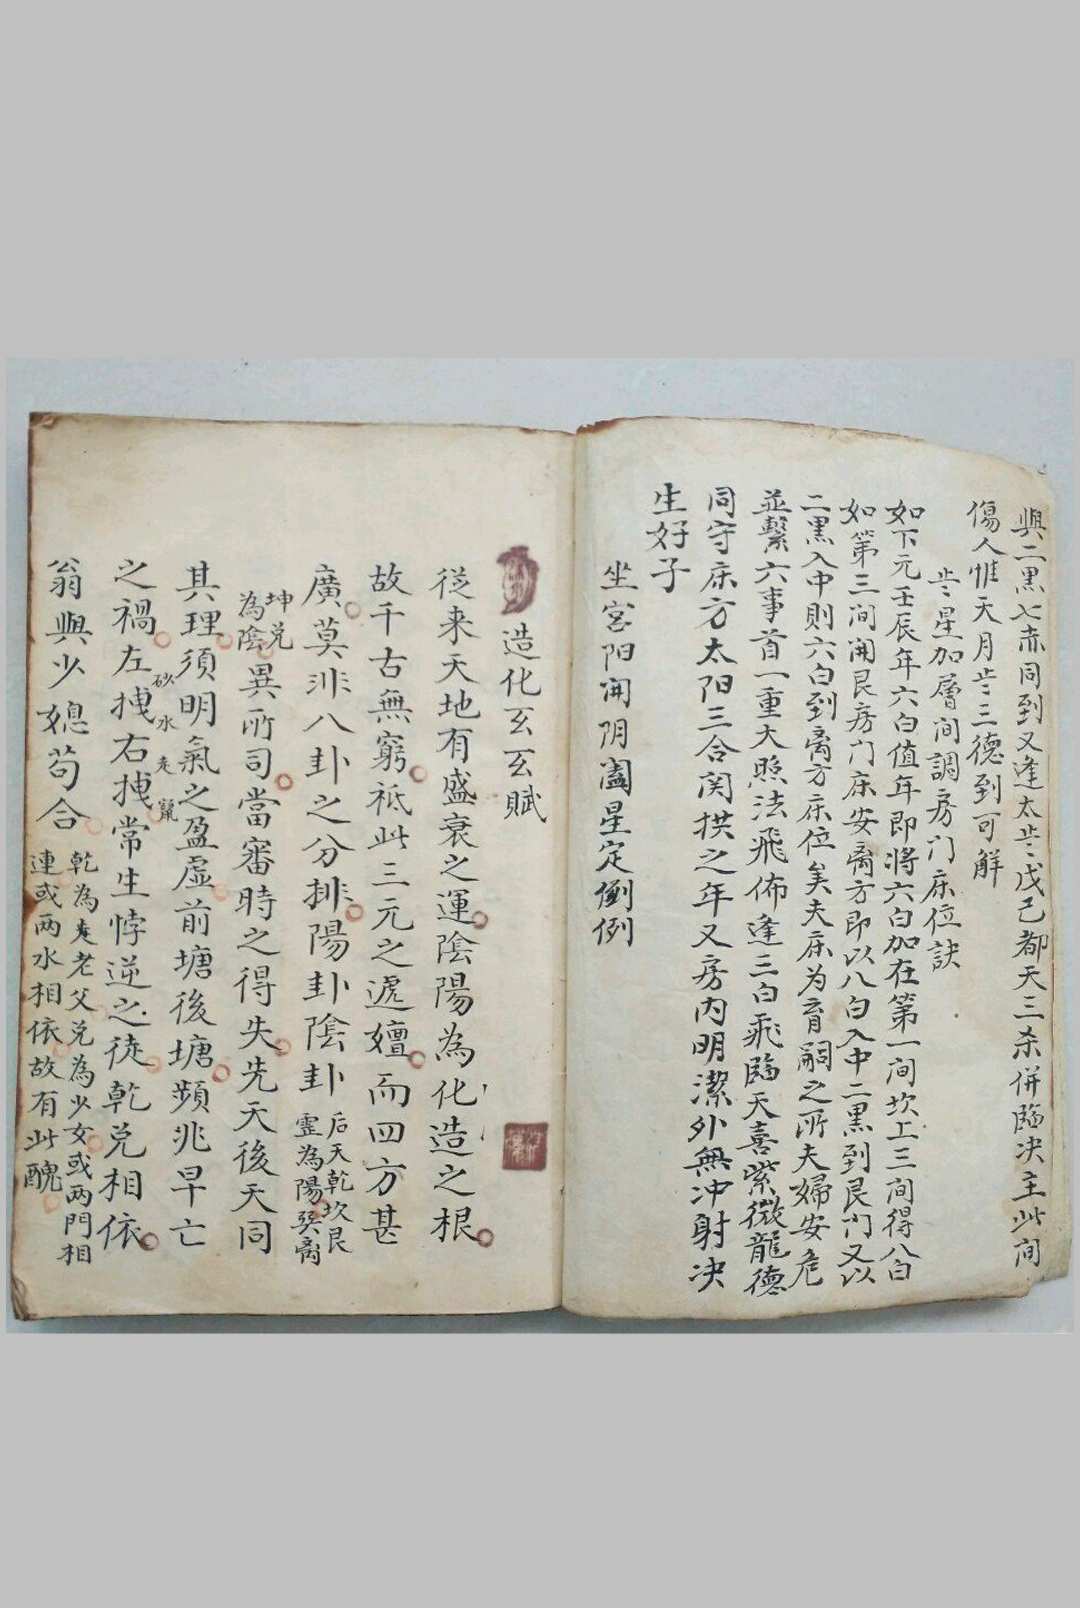 與二黒七赤同到又逢太歲戊己都天三杀併臨决主此间
傷人惟天月歲三德到可解
歲星加層间調房门床位訣
如下元壬辰年六白值年即將六白加在第一间坎上三间得八白
如第三间開艮房门床安离方即以八白入中二黒到艮门又以
二黒入中則六白到离方床位矣夫床为育嗣之所夫婦安危
並繫六事首一重大照法飛佈逢三白飛臨天喜紫微龍德
同守床方太阳三合関拱之年又房内明潔外無冲射决
生好子
坐宮阳開阴阖星定例例
造化玄玄賦
從来天地有盛衰之運陰陽為化造之根
故千古無窮祗此三元之遞嬗而四方甚
廣莫非八卦之分排陽卦陰卦后天乾坎艮
震為陽巽离
坤兑
為陰異所司當審時之得失先天後天同
其理須明氣之盈虚前塘後塘頻兆早亡
之禍左砂拽水右夫拽竈常生悖逆之徒乾兑相依
翁與少媳苟合乾為夫老父兑為少女或两門相
連或两水相依故有此醜